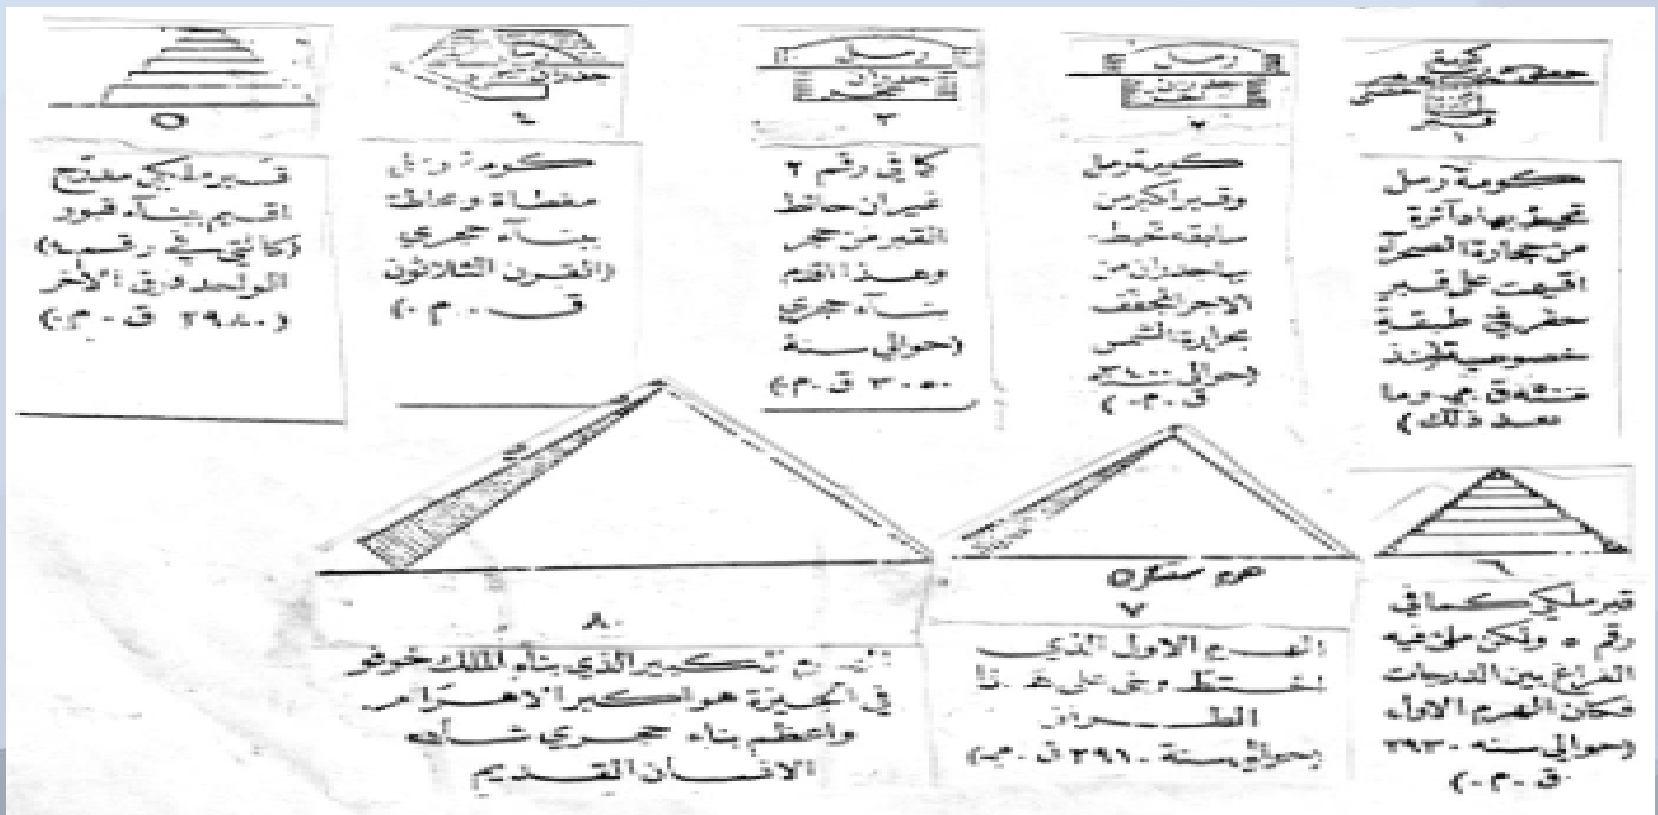 رمل
رمل
١
٢
٣
٤
٥
كومة رمل
تحيط بها دائرة
من حجارة الصحراء
اقيمت على قبر
حفر في طبقة
ق.م. وما
بعد ذلك)
كومة رمل
وقبر اكبر من
سابقه تحيط
به جدران من
الاجر المجفف
بحرارة الشمس
(حوالي ٣٤٠٠
ق.م.)
كما في رقم ٢
غير ان حائط
القبر من حجر
وهذا اقدم
بناء حجري
(حوالي سنة
٣٠٥٠ ق.م.)
كومة
مغطاة وحائط
بناء حجري
(القرن الثلاثون
ق.م.)
قبر ملكي مدرج
اقيم بناء فوق
الواحد فوق الآخر
(٢٩٨٠ ق.م.)
هرم
٧
٨
قبر ملكي كما في
رقم ٥ ولكن ملئ فيه
الفراغ بين الدرجات
فكان الهرم الاول
(حوالي سنة ٢٩٣٠
ق.م.)
الهرم الاول الذي
على هذا
الطراز
(حوالي سنة ٢٩١٠ ق.م.)
الهرم الكبير الذي بناه الملك خوفو
في الجيزة هو اكبر الاهرام
واعظم بناء حجري شاده
الانسان القديم